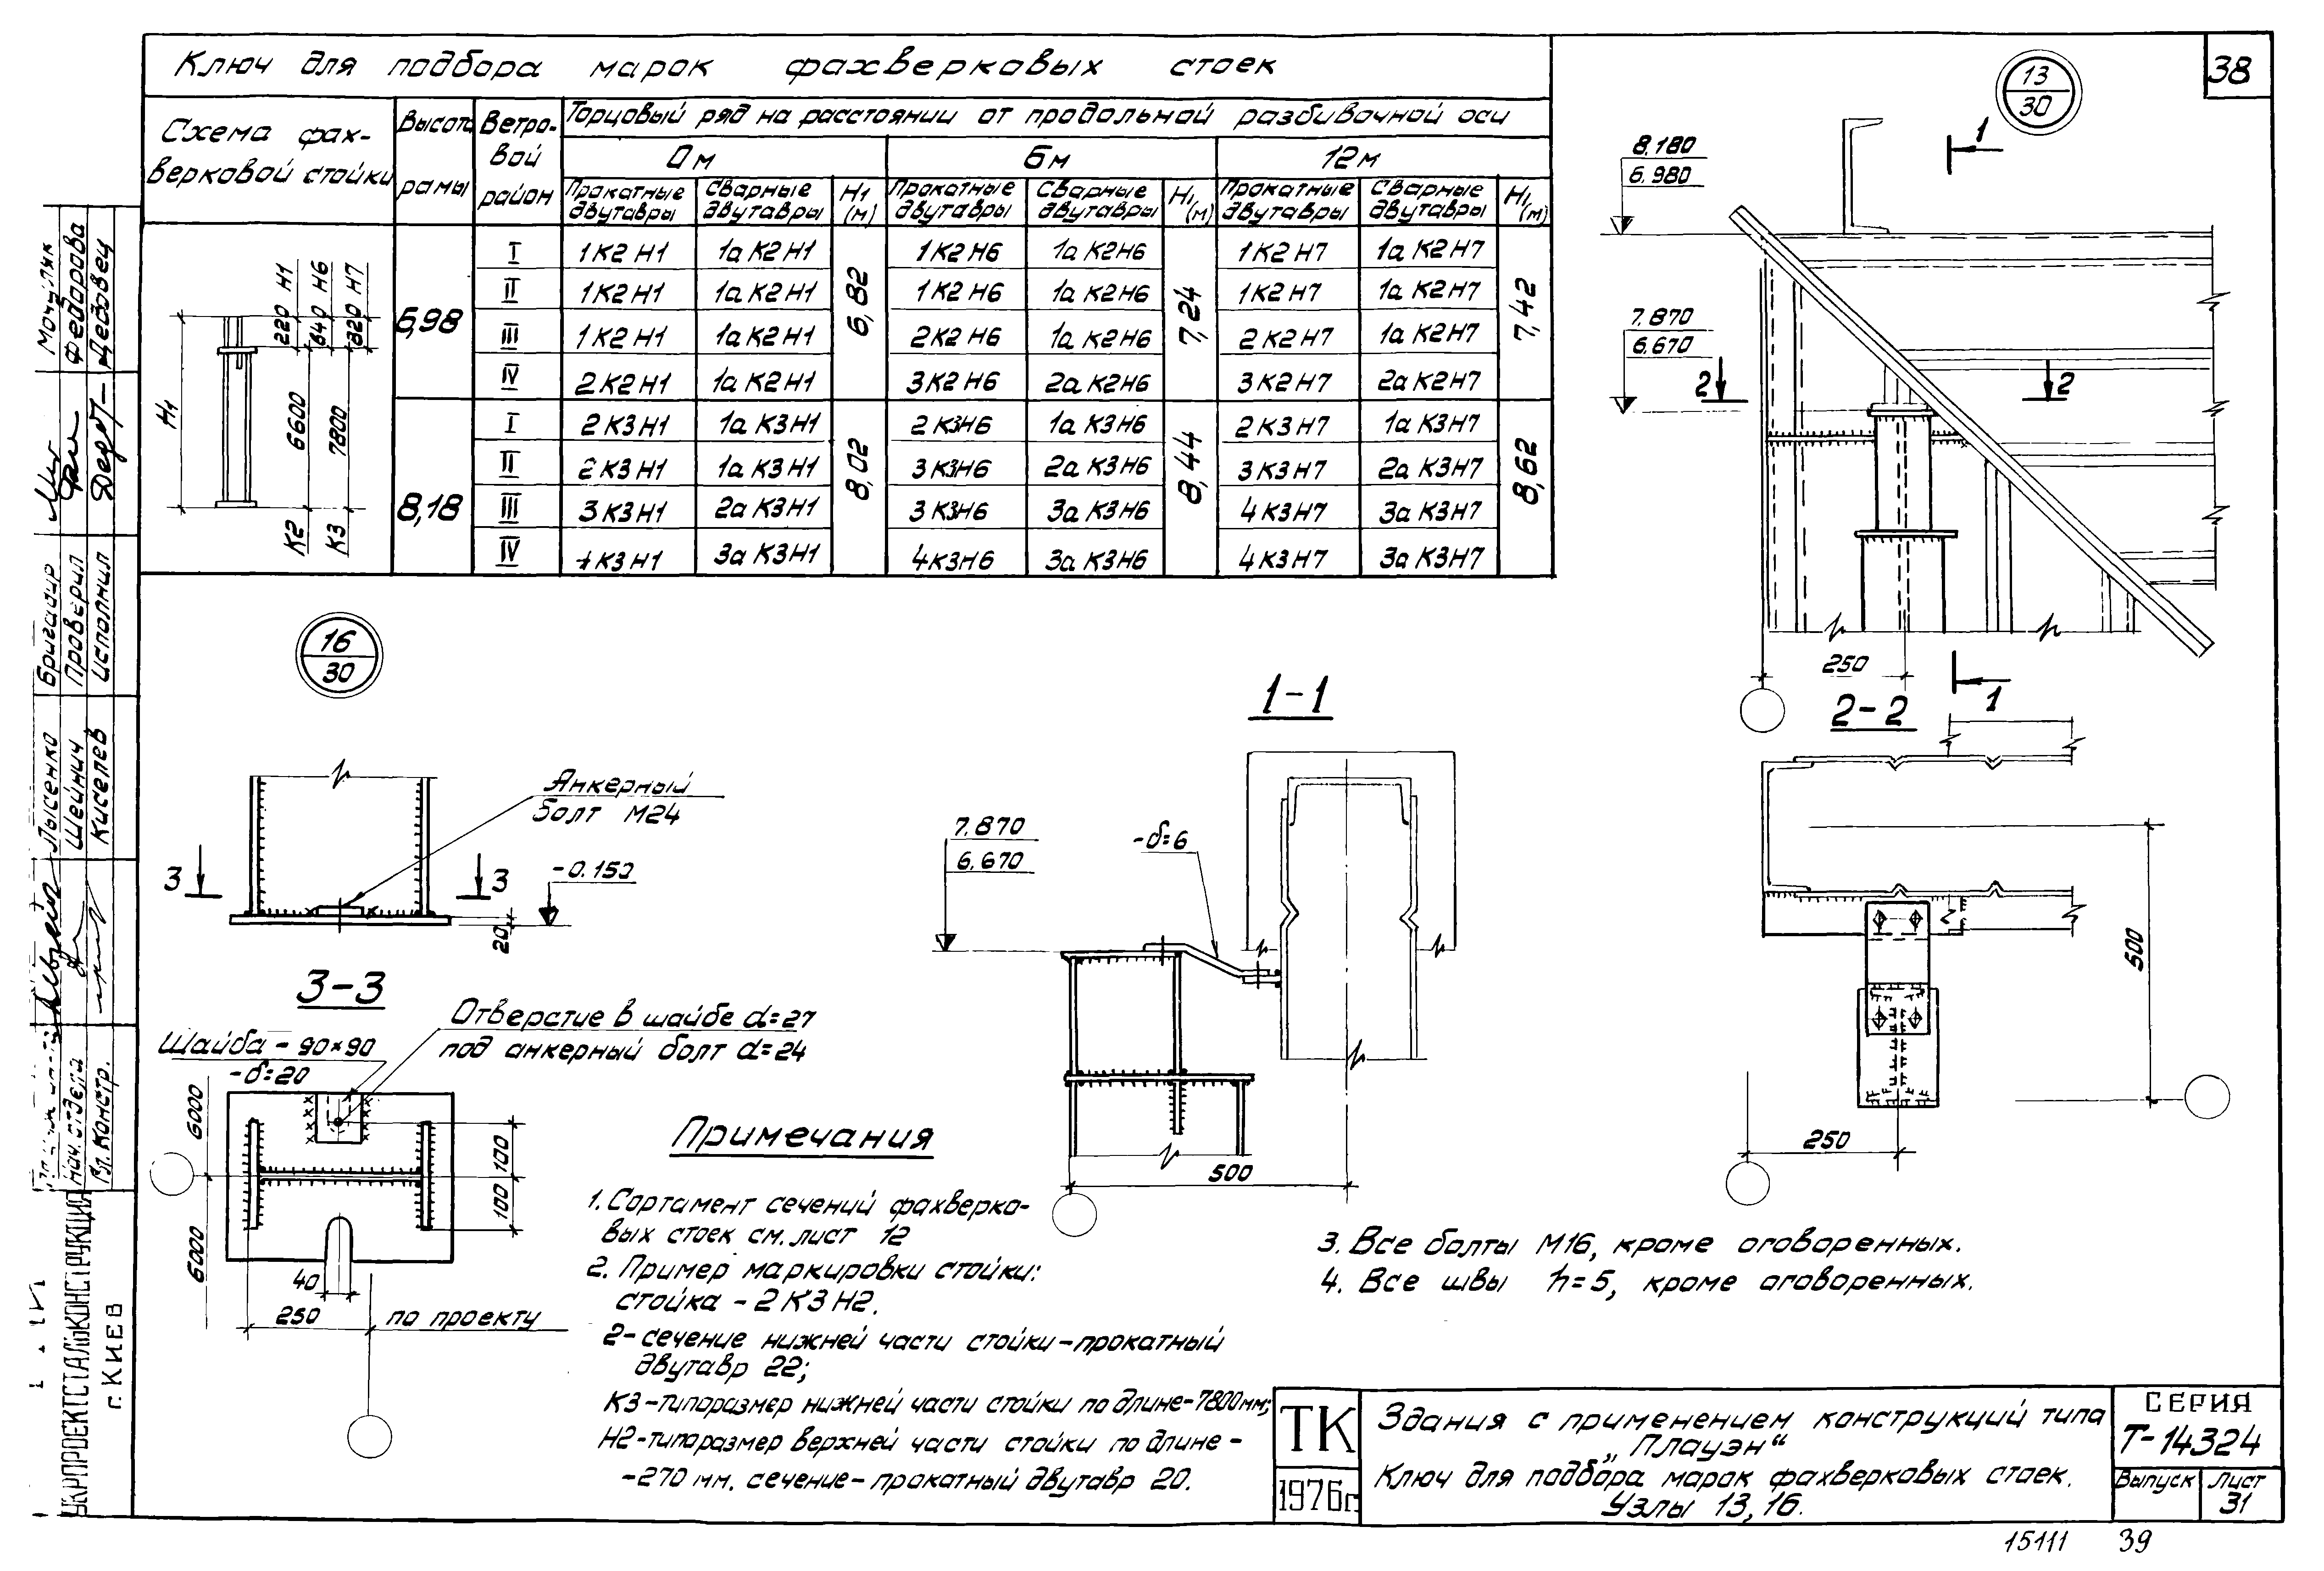 38
Ключ для подбора марок фахверковых стоек
Схема фах-
верковой стойки
Высота
рамы
Ветро-
вой
район
Торцовый ряд на расстоянии от продольной разбивочной оси
0м 6м 12м
Прокатные двутавры Сварные двутавры H1 (м) Прокатные двутавры Сварные двутавры H1 (м) Прокатные двутавры Сварные двутавры H1 (м)
6,98 6,82 7,24 7,42
I 1К2Н1 1аК2Н1 1К2Н6 1аК2Н6 1К2Н7 1аК2Н7
II 1К2Н1 1аК2Н1 1К2Н6 1аК2Н6 1К2Н7 1аК2Н7
III 1К2Н1 1аК2Н1 2К2Н6 1аК2Н6 2К2Н7 1аК2Н7
IV 2К2Н1 1аК2Н1 3К2Н6 2аК2Н6 3К2Н7 2аК2Н7
8,18 8,02 8,44 8,62
I 2К3Н1 1аК3Н1 2К3Н6 1аК3Н6 2К3Н7 1аК3Н7
II 2К3Н1 1аК3Н1 3К3Н6 2аК3Н6 3К3Н7 2аК3Н7
III 3К3Н1 2аК3Н1 3К3Н6 3аК3Н6 4К3Н7 3аК3Н7
IV К3Н1 3аК3Н1 4К3Н6 3аК3Н6 4К3Н7 3аК3Н7
H1
220 Н1
640 Н6
820 Н7
6600
7800
К2
К3
13
30
8.180
6.980
7.870
6.670
1
2 2
250
1
16
30
Анкерный
болт М24
3 3
-0.150
20
3-3
Отверстие в шайбе d=27
под анкерный болт d=24
Шайба - 90×90
-δ=20
6000
6000
100
100
40
250
по проекту
1-1
7.870
6.670
-δ=6
500
2-2
500
250
Примечания
1. Сортамент сечений фахверко-
вых стоек см. лист 12
2. Пример маркировки стойки:
стойка - 2К3Н2.
2- сечение нижней части стойки-прокатный
двутавр 22;
К3-типоразмер нижней части стойки по длине-7800мм;
Н2-типоразмер верхней части стойки по длине -
-270 мм. сечение- прокатный двутавр 20.
3. Все болты М16, кроме оговоренных.
4. Все швы h=5, кроме оговоренных.
ТК
1976г
Здания с применением конструкций типа
„Плауэн“
Ключ для подбора марок фахверковых стоек.
Узлы 13, 16.
СЕРИЯ
Т-14324
Выпуск
Лист
31
15111 39
Федорова
Дедовец
Бригадир
Проверил
Исполнил
Лысенко
Шейнич
Киселев
Нач. отдела
Гл. констр.
УКРПРОЕКТСТАЛЬКОНСТРУКЦИЯ
г. КИЕВ